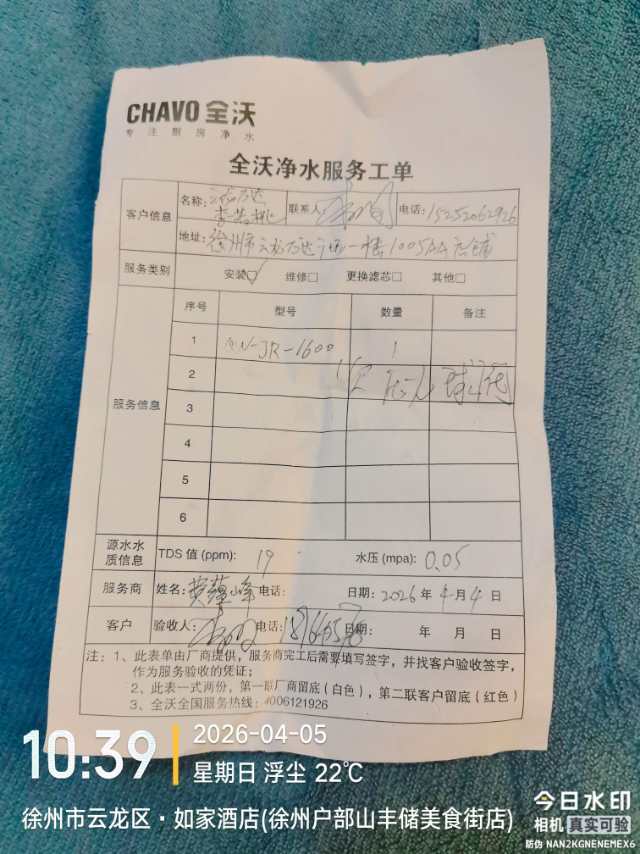 CHAVO 全沃
专注厨房净水
全沃净水服务工单
客户信息 名称: 联系人: 电话: 15252062926
地址: 徐州市云龙万达广场一楼1005AA店铺
服务类别 安装☑ 维修□ 更换滤芯□ 其他□
服务信息 序号 型号 数量 备注
1 QN-JR-1600 1
2
3
4
5
6
源水水质信息 TDS 值 (ppm): 19 水压 (mpa): 0.05
服务商 姓名: 电话: 日期: 2026 年 4 月 4 日
客户 验收人: 电话: 日期: 年 月 日
注：1、此表单由厂商提供，服务商完工后需要填写签字，并找客户验收签字，
作为服务验收的凭证；
2、此表一式两份，第一联厂商留底（白色），第二联客户留底（红色）
3、全沃全国服务热线：4006121926
10:39
2026-04-05
星期日 浮尘 22℃
徐州市云龙区·如家酒店(徐州户部山丰储美食街店)
今日水印
相机 真实可验
防伪 NAN2KGNENEMEX6